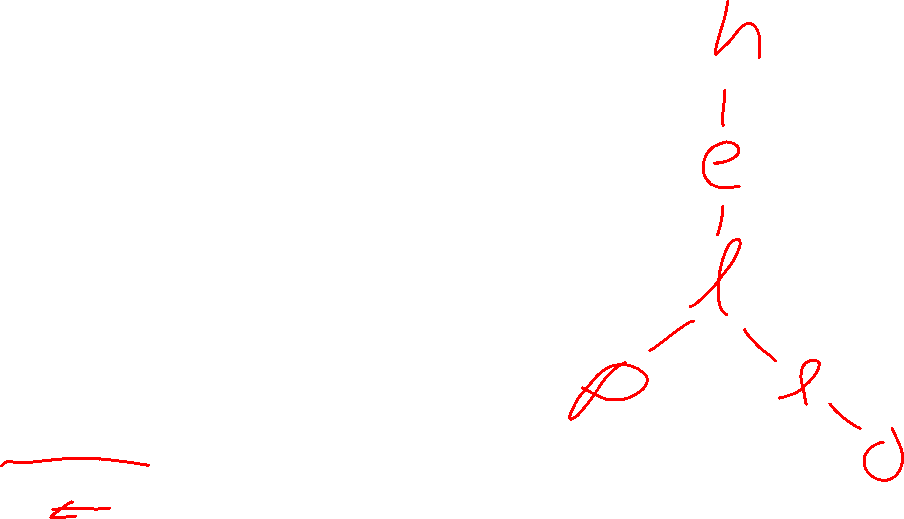 h
e
l
p l
o